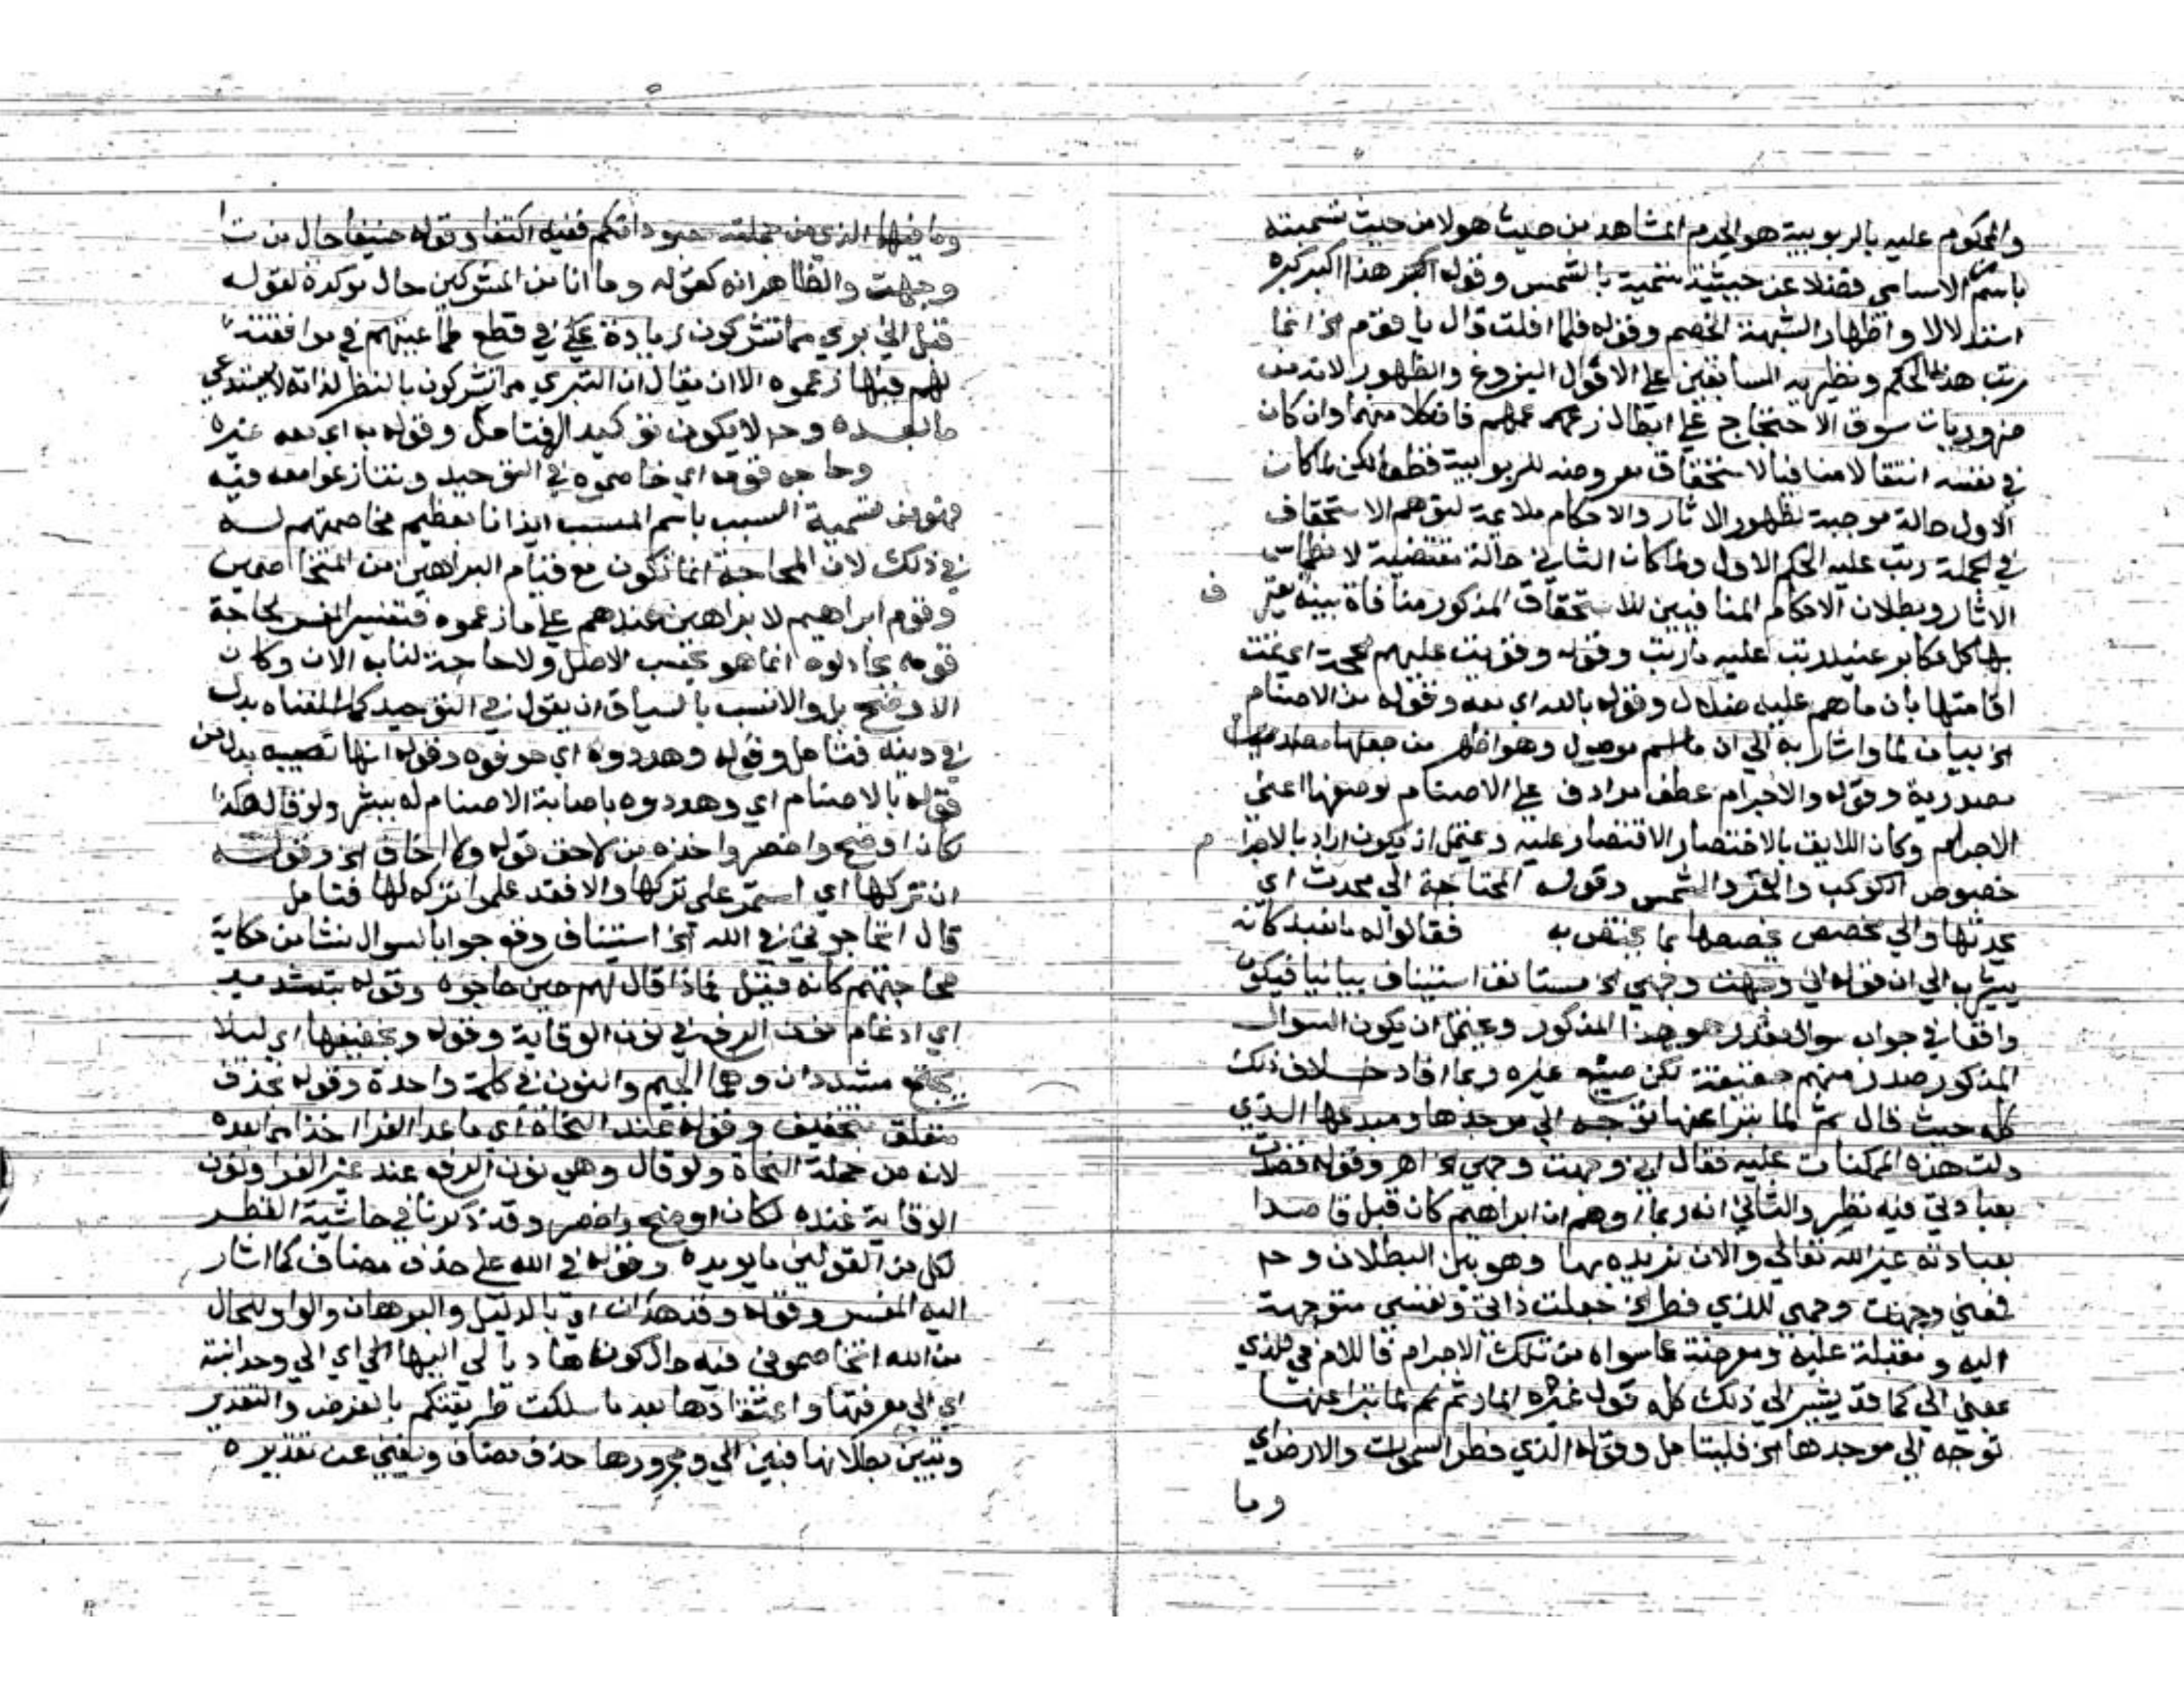 والمحكوم عليه بالربوبية هو الجرم المشاهد من حيث هو لا من حيث تسميته
باسم من الاسامي فضلا عن حيثية تسميته بالشمس وقوله اكبر هذا اكبر كبره
استدلالا واظهارا لشبهة الخصم وقوله فلما افلت قال يا قوم الخ انما
رتب هذا الحكم ونظيريه السابقين على الافول البزوغ والظهور لانه من
ضروريات سوق الاحتجاج على ابطال زعمهم فان كلا منهما وان كان
في نفسه انتقالا منافيا لاستحقاق معروضه للربوبية قطعا لكن لما كان
الاول حالة موجبة لظهور الاثار والاحكام ملايمة لتوهم الاستحقاق
في الجملة رتب عليه الحكم الاول ولما كان الثاني حالة مقتضية لانطماس
الاثار وبطلان الاحكام المنافيين للاستحقاق المذكور منافاة بينة يعترف
بها كل مكابر عنيد رتب عليه ما رتب وقوله وقويت عليهم الحجة اي تمت
اقامتها بان ما هم عليه ضلال وقوله بالله اي معه وقوله من الاصنام
الخ بيان لما واشار به الي ان ما اسم موصول وهو اظهر من جعلها
مصدرية وقوله والاجرام عطف مرادف على الاصنام لوصفها اعني
الاجرام وكان اللايق بالاختصار الاقتصار عليه ويحتمل ان يكون اراد بالاجرام
خصوص الكوكب والقمر والشمس وقوله المحتاجة الي محدث اي
يحدثها والي مخصص يخصصها بما يختص به فقالوا له ما تعبد كانه
يشير به الي ان قوله اني وجهت وجهي الخ مستانف استينافا بيانيا فيكون
واقعا في جواب سوال مقدر هو هذا المذكور ويحتمل ان يكون السوال
المذكور صدر منهم حقيقة لكن صنيع غيره ربما افاد خلاف ذلك
كله حيث قال ثم لما تبرا عنها توجه الي موجدها ومبدعها الذي
دلت هذه الممكنات عليه فقال اني وجهت وجهي الخ اهـ وقوله قصدت
بعبادتي فيه نظر والثاني انه ربما اوهم ان ابراهيم كان قبل قاصدا
بعبادته غير الله تعالي والان يريده بها وهو بين البطلان وح
فمعني وجهت وجهي للذي فطر الخ جعلت ذاتي ونفسي متوجهة
اليه ومقبلة عليه ومعرضة عما سواه من تلك الاجرام فاللام في للذي
بمعني الي كما قد يشير الي ذلك كله قول غيره المار ثم لما تبرا عنها
توجه الي موجدها الخ فليتامل وقوله الذي فطر السموات والارض اي
وما
وما فيهما الذي من جملته معبوداتكم ففيه اكتفا وقوله حنيفا حال من تا
وجهت والظاهر انه كقوله وما انا من المشركين حال موكدة لقوله
قبل اني بري مما تشركون زيادة على في قطع طماعيتهم في موافقته
لهم فيما زعموه الا ان يقال ان التبري مما تشركون بالنظر لذاته لا يستدعي
ما بعده وح لا يكون توكيدا فتامل وقوله به اي معه غيره
وحاجه قومه اي خاصموه في التوحيد وتنازعوا معه فيه
فهو من تسمية السبب باسم المسبب ايذانا بعظيم مخاصمتهم له
في ذلك لان المحاجة انما تكون مع قيام البراهين من المتخاصمين
وقوم ابراهيم لا براهين عندهم على ما زعموه فتفسير المفسر لحاجه
قومه بجادلوه انما هو بحسب الاصل ولا حاجة لنا به الان وكان
الاوضح بل والانسب بالسياق ان يقول في التوحيد كما اسلفناه بدل
في دينه فتامل وقوله وهددوه اي خوفوه وقوله انها تصيبه بدل من
قوله بالاصنام اي وهددوه باصابة الاصنام له بشر ولو قال هكذا
لكان اوضح واخصر واخذه من لاحق قوله ولا اخاف الخ وقوله
ان تركها اي استمر على تركها والا فقد علموا تركه لها فتامل
قال اتحاجوني في الله الخ استيناف وقع جوابا لسوال نشا من حكاية
محاجتهم كانه قيل فماذا قال لهم حين حاجوه وقوله بتشديد
اي ادغام نون الرفع في نون الوقاية وقوله وتخفيفها اي ليلا
يجتمع مشددان وهما الجيم والنون في كلمة واحدة وقوله بحذف
متعلق بتخفيف وقوله عند النحاة اي ما عدا الفرا اخذا مما بعده
لانه من جملة النحاة ولو قال وهي نون الرفع عند غير الفرا ونون
الوقاية عنده لكان اوضح واخصر وقد ذكرنا في حاشية القطر
لكل من القولين ما يويده وقوله في الله على حذف مضاف كما اشار
اليه المفسر وقوله وقد هدان اي بالدليل والبرهان والواو للحال
من الله اتخاصموني فيه حال كونه هاديا لي اليها الي اي الي وحدانيته
اي الي معرفتها واعتقادها بعد ما سلكت طريقتكم بالفرض والتقدير
وتبين بطلانها فبين الي ومجرورها حذف مضاف ويغني عن تقديره